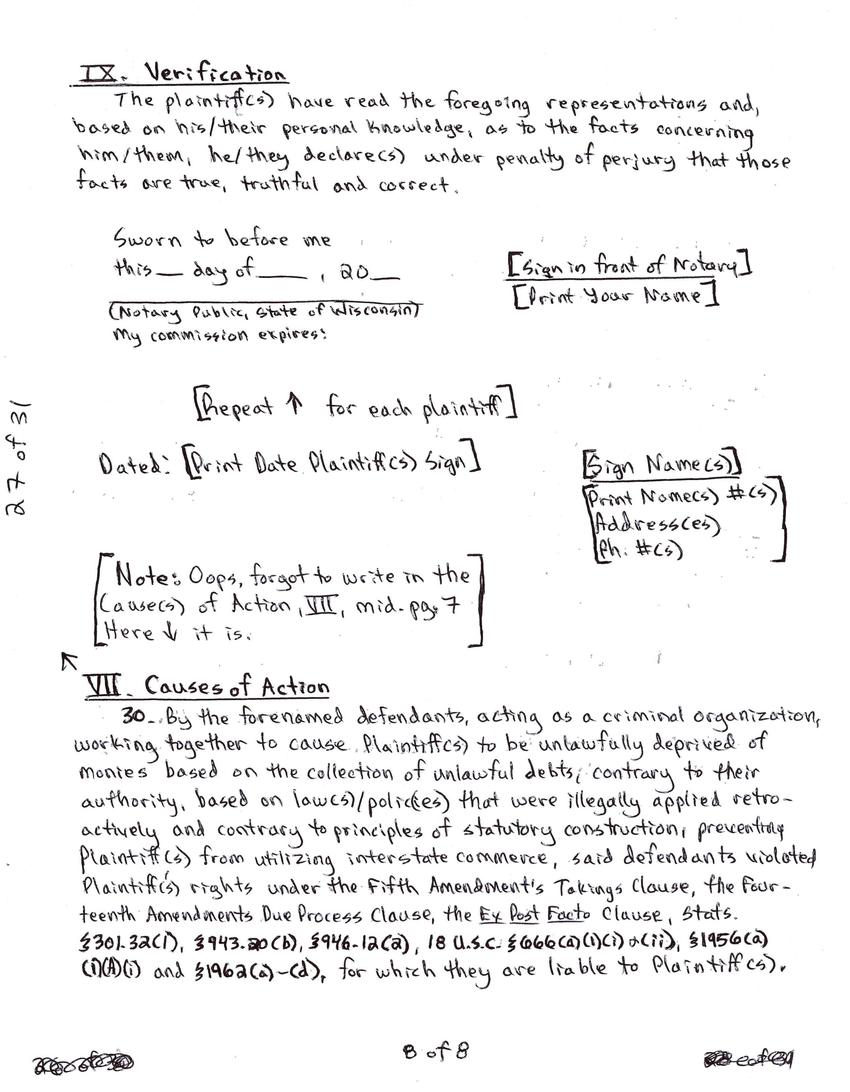 IX. Verification
The plaintiff(s) have read the foregoing representations and,
based on his/their personal knowledge, as to the facts concerning
him/them, he/they declare(s) under penalty of perjury that those
facts are true, truthful and correct.
Sworn to before me
this__ day of____, 20__
(Notary Public, State of Wisconsin)
My commission expires:
[Sign in front of Notary]
[Print Your Name]
[Repeat ↑ for each plaintiff]
Dated: [Print Date Plaintiff(s) Sign]
[Sign Name(s)]
[Print Name(s) #(s)
Address(es)
Ph. #(s)]
27 of 31
[Note: Oops, forgot to write in the
Cause(s) of Action, VII, mid-pg. 7
Here ↓ it is.]
VII. Causes of Action
30. By the forenamed defendants, acting as a criminal organization,
working together to cause Plaintiff(s) to be unlawfully deprived of
monies based on the collection of unlawful debts, contrary to their
authority, based on law(s)/polic(ies) that were illegally applied retro-
actively and contrary to principles of statutory construction, preventing
Plaintiff(s) from utilizing interstate commerce, said defendants violated
Plaintiff(s) rights under the Fifth Amendment's Takings Clause, the Four-
teenth Amendments Due Process Clause, the Ex Post Facto Clause, Stats.
§301.32(1), §943.20(b), §946.12(2), 18 U.S.C. §666(a)(1)(i)+(ii), §1956(a)
(1)(A)(i) and §1962(a)-(d), for which they are liable to Plaintiff(s).
8 of 8